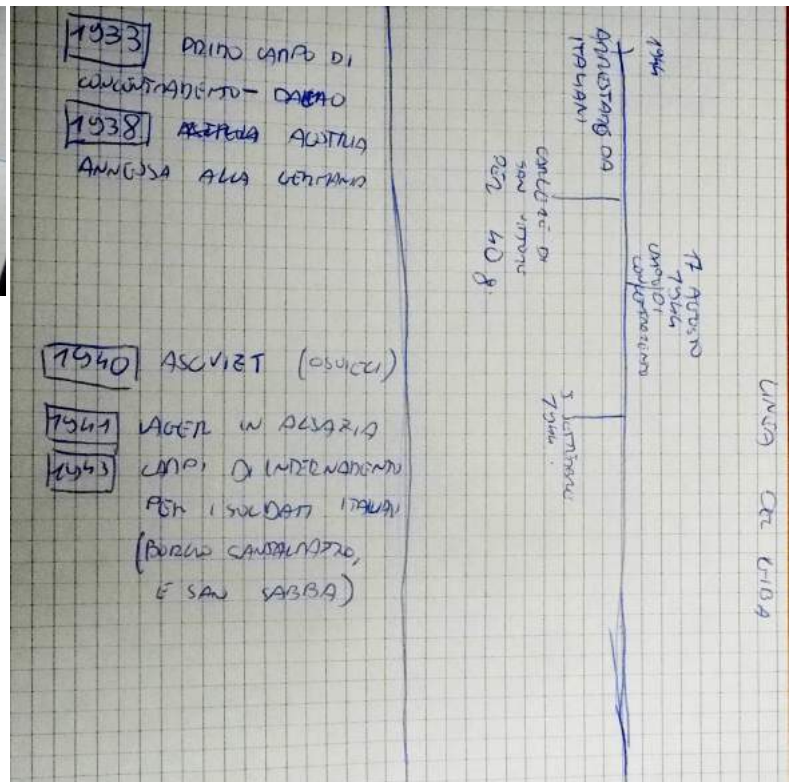 1933 PRIMO CAMPO DI
CONCENTRAMENTO - DACAO
1938 AUSTRIA
ANNESSA ALLA GERMANIA
1940 ASCVIZT (OSVIECI)
1941 LAGER IN ALSAZIA
1943 CAMPI DI INTERNAMENTO
PER I SOLDATI ITALIAN
(BORGO SANDALMAZZO,
E SAN SABBA)
LINEA
1944
ARRESTATO DA
ITALIANI
CARCERE DI
SAN VITTORE
PER 40 g.
17 AGOSTO
1944
CAMPO DI
CONCENTRAMENTO
5 SETTEMBRE
1944